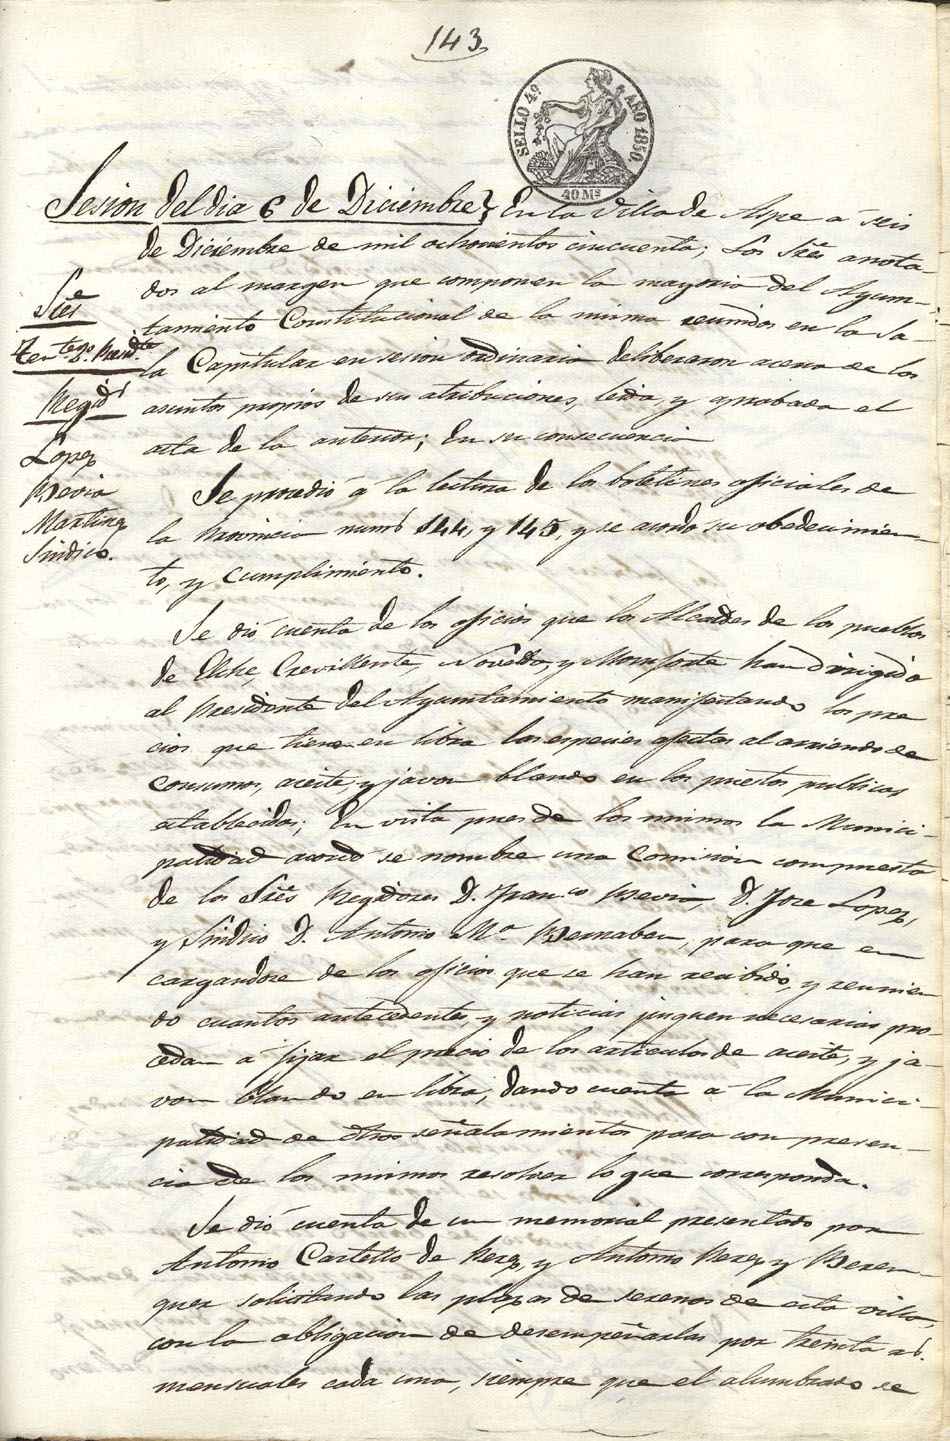 143
SELLO 4º AÑO 1850.
40 Ms
Sesion del dia 6 de Diciembre} En la Villa de Aspe a seis
de Diciembre de mil ochocientos cincuenta; Los Sres anota-
dos al margen que componen la mayoria del Ayun-
tamiento Constitucional de la misma reunidos en la Sa-
la Capitular en sesion ordinaria deliberaron acerca de los
asuntos propios de sus atribuciones, leida, y aprobada el
acta de la anterior; En su consecuencia
Sres
Tente 2º Preside
Regid
Lopez
Pavia
Martinez
Sindico.
Se procedió á la lectura de los boletines oficiales de
la Provincia num 144, y 145, y se acordo su obedecimien-
to, y cumplimiento.
Se dió cuenta de los oficios que los Alcaldes de los pueblos
de Elche, Crevillente, Novelda, y Monforte han dirigido
al Presidente del Ayuntamiento manifestando los pre
cios que tiene en libra las especies afectas al arriendo de
Consumos, aceite, y javon blando en los puestos publicos
establecidos; En vista pues de los mismos la Munici-
palidad acordó se nombre una Comision compuesta
de los Sres Regidores D. Franco Pavia, D. Jose Lopez,
y Sindico D. Antonio Mª Bernabeu, para que en
cargandose de los oficios que se han recibido, y reunien
do cuantos antecedentes, y noticias juzguen necesarias pro-
cedan a fijar el precio de los articulos de aceite, y ja-
von blando en libra, dando cuenta á la Munici-
palidad de dhos señalamientos para con presen-
cia de los mismos resolver lo que corresponda.
Se dió cuenta de un memorial presentado por
Antonio Castelló de Perez, y Antonio Perez y Beren-
guer solicitando las plazas de serenos de esta villa,
con la obligacion de desempeñarlas por treinta rs.
mensuales cada una, siempre que el alumbrado se